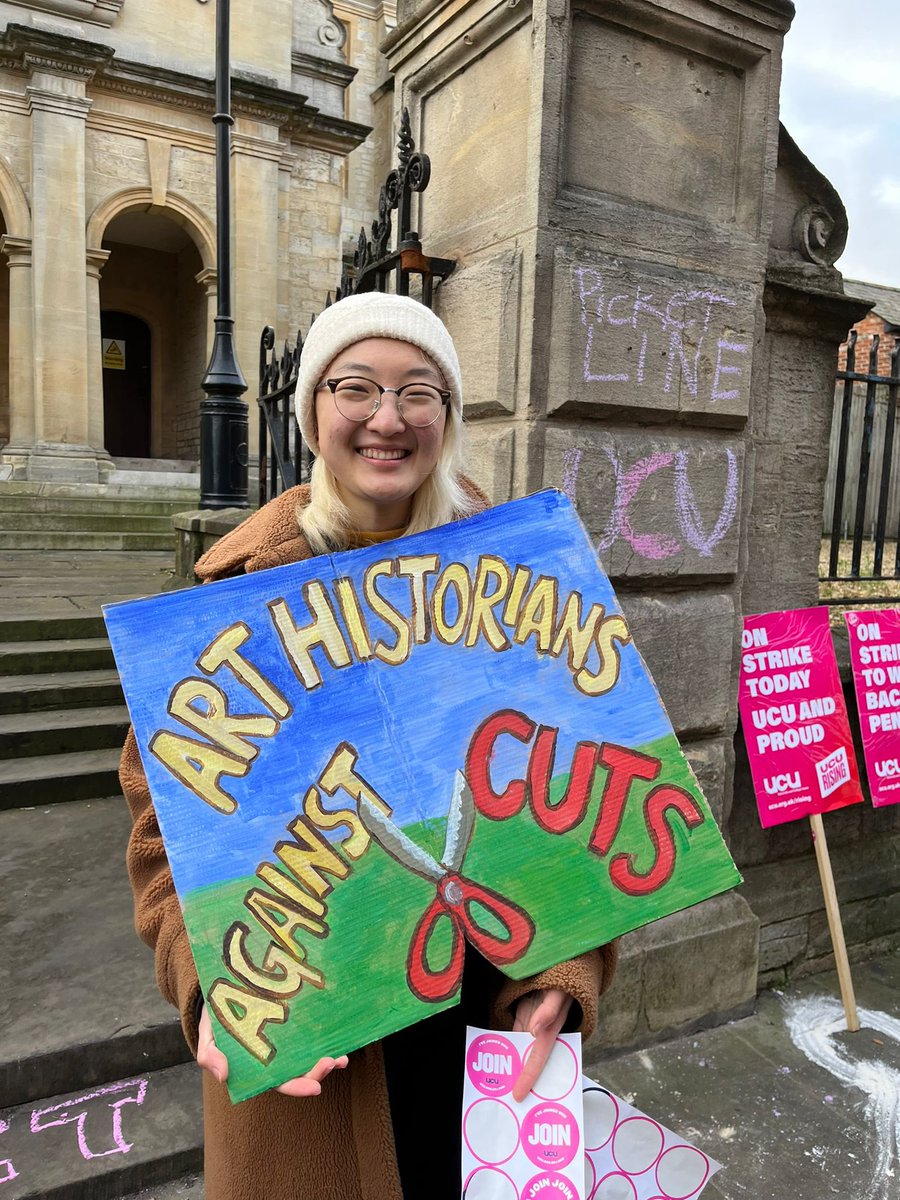 PICKET
LINE
UCU
ART HISTORIANS
AGAINST
CUTS
ON
STRIKE
TODAY
UCU AND
PROUD
UCU
UCU
RISING
ucu.org.uk/rising
ON
STRI
TO W
BAC
PEN
UCU
JOIN
UCU
JOIN
UCU
JOIN
JOIN